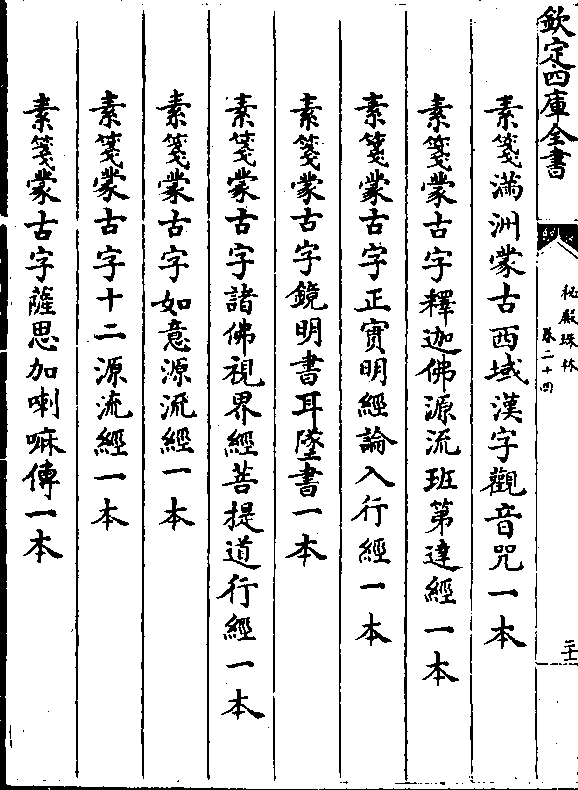 欽定四庫全書
秘殿珠林
卷二十四
素箋滿洲蒙古西域漢字觀音咒一本
素箋蒙古字釋迦佛源流班第達經一本
素箋蒙古字正實明經論入行經一本
素箋蒙古字鏡明書耳墜書一本
素箋蒙古字諸佛視界經菩提道行經一本
素箋蒙古字如意源流經一本
素箋蒙古字十二源流經一本
素箋蒙古字薩思加喇嘛傳一本